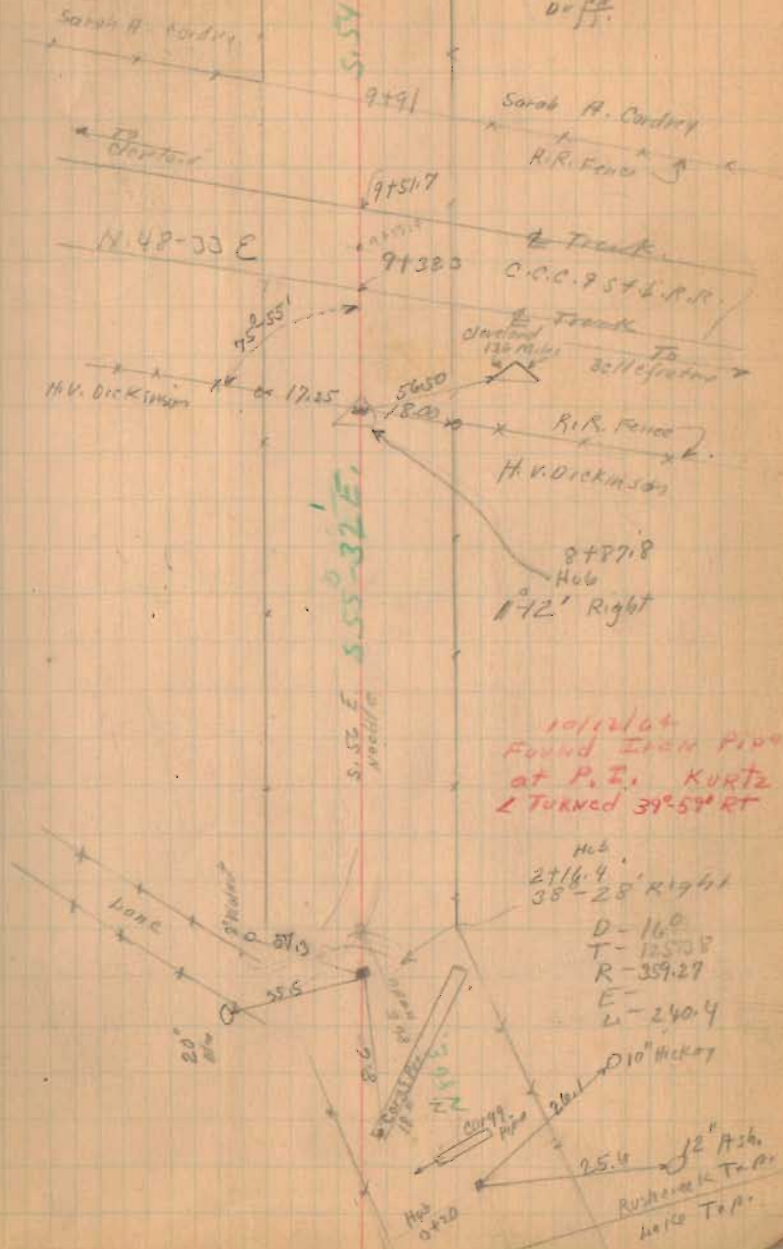 Sarah A. Cordrey
S.54
9+91
Sarah A. Cordrey
R.R. Fence
To
9+51.7
N. 48-33 E
9+38.0
℄ Track
C.C.C. & St. L. R.R.
℄ Track
75°-55'
Cleveland
126 Miles
To
Bellefontaine
H.V. Dickinson
17.25
56.50
18.00
R.R. Fence
H.V. Dickinson
S.55°-32' E.
8+87.8
Hub
1°-12' Right
S.56 E
Needle
10/12/64
Found Iron Pipe
at P.I. KURTZ
∠ TURNED 39°-59' RT
Hub
2+16.4
38°-28' Right
Lane
57.3
35.5
20"
Elm
D - 16°
R - 359.27
E -
L - 240.4
8.6
10" Hickory
26.1
Corr. Pipe
25.6
12" Ash.
Hub
0+20
Rushcreek Twp.
Lake Twp.